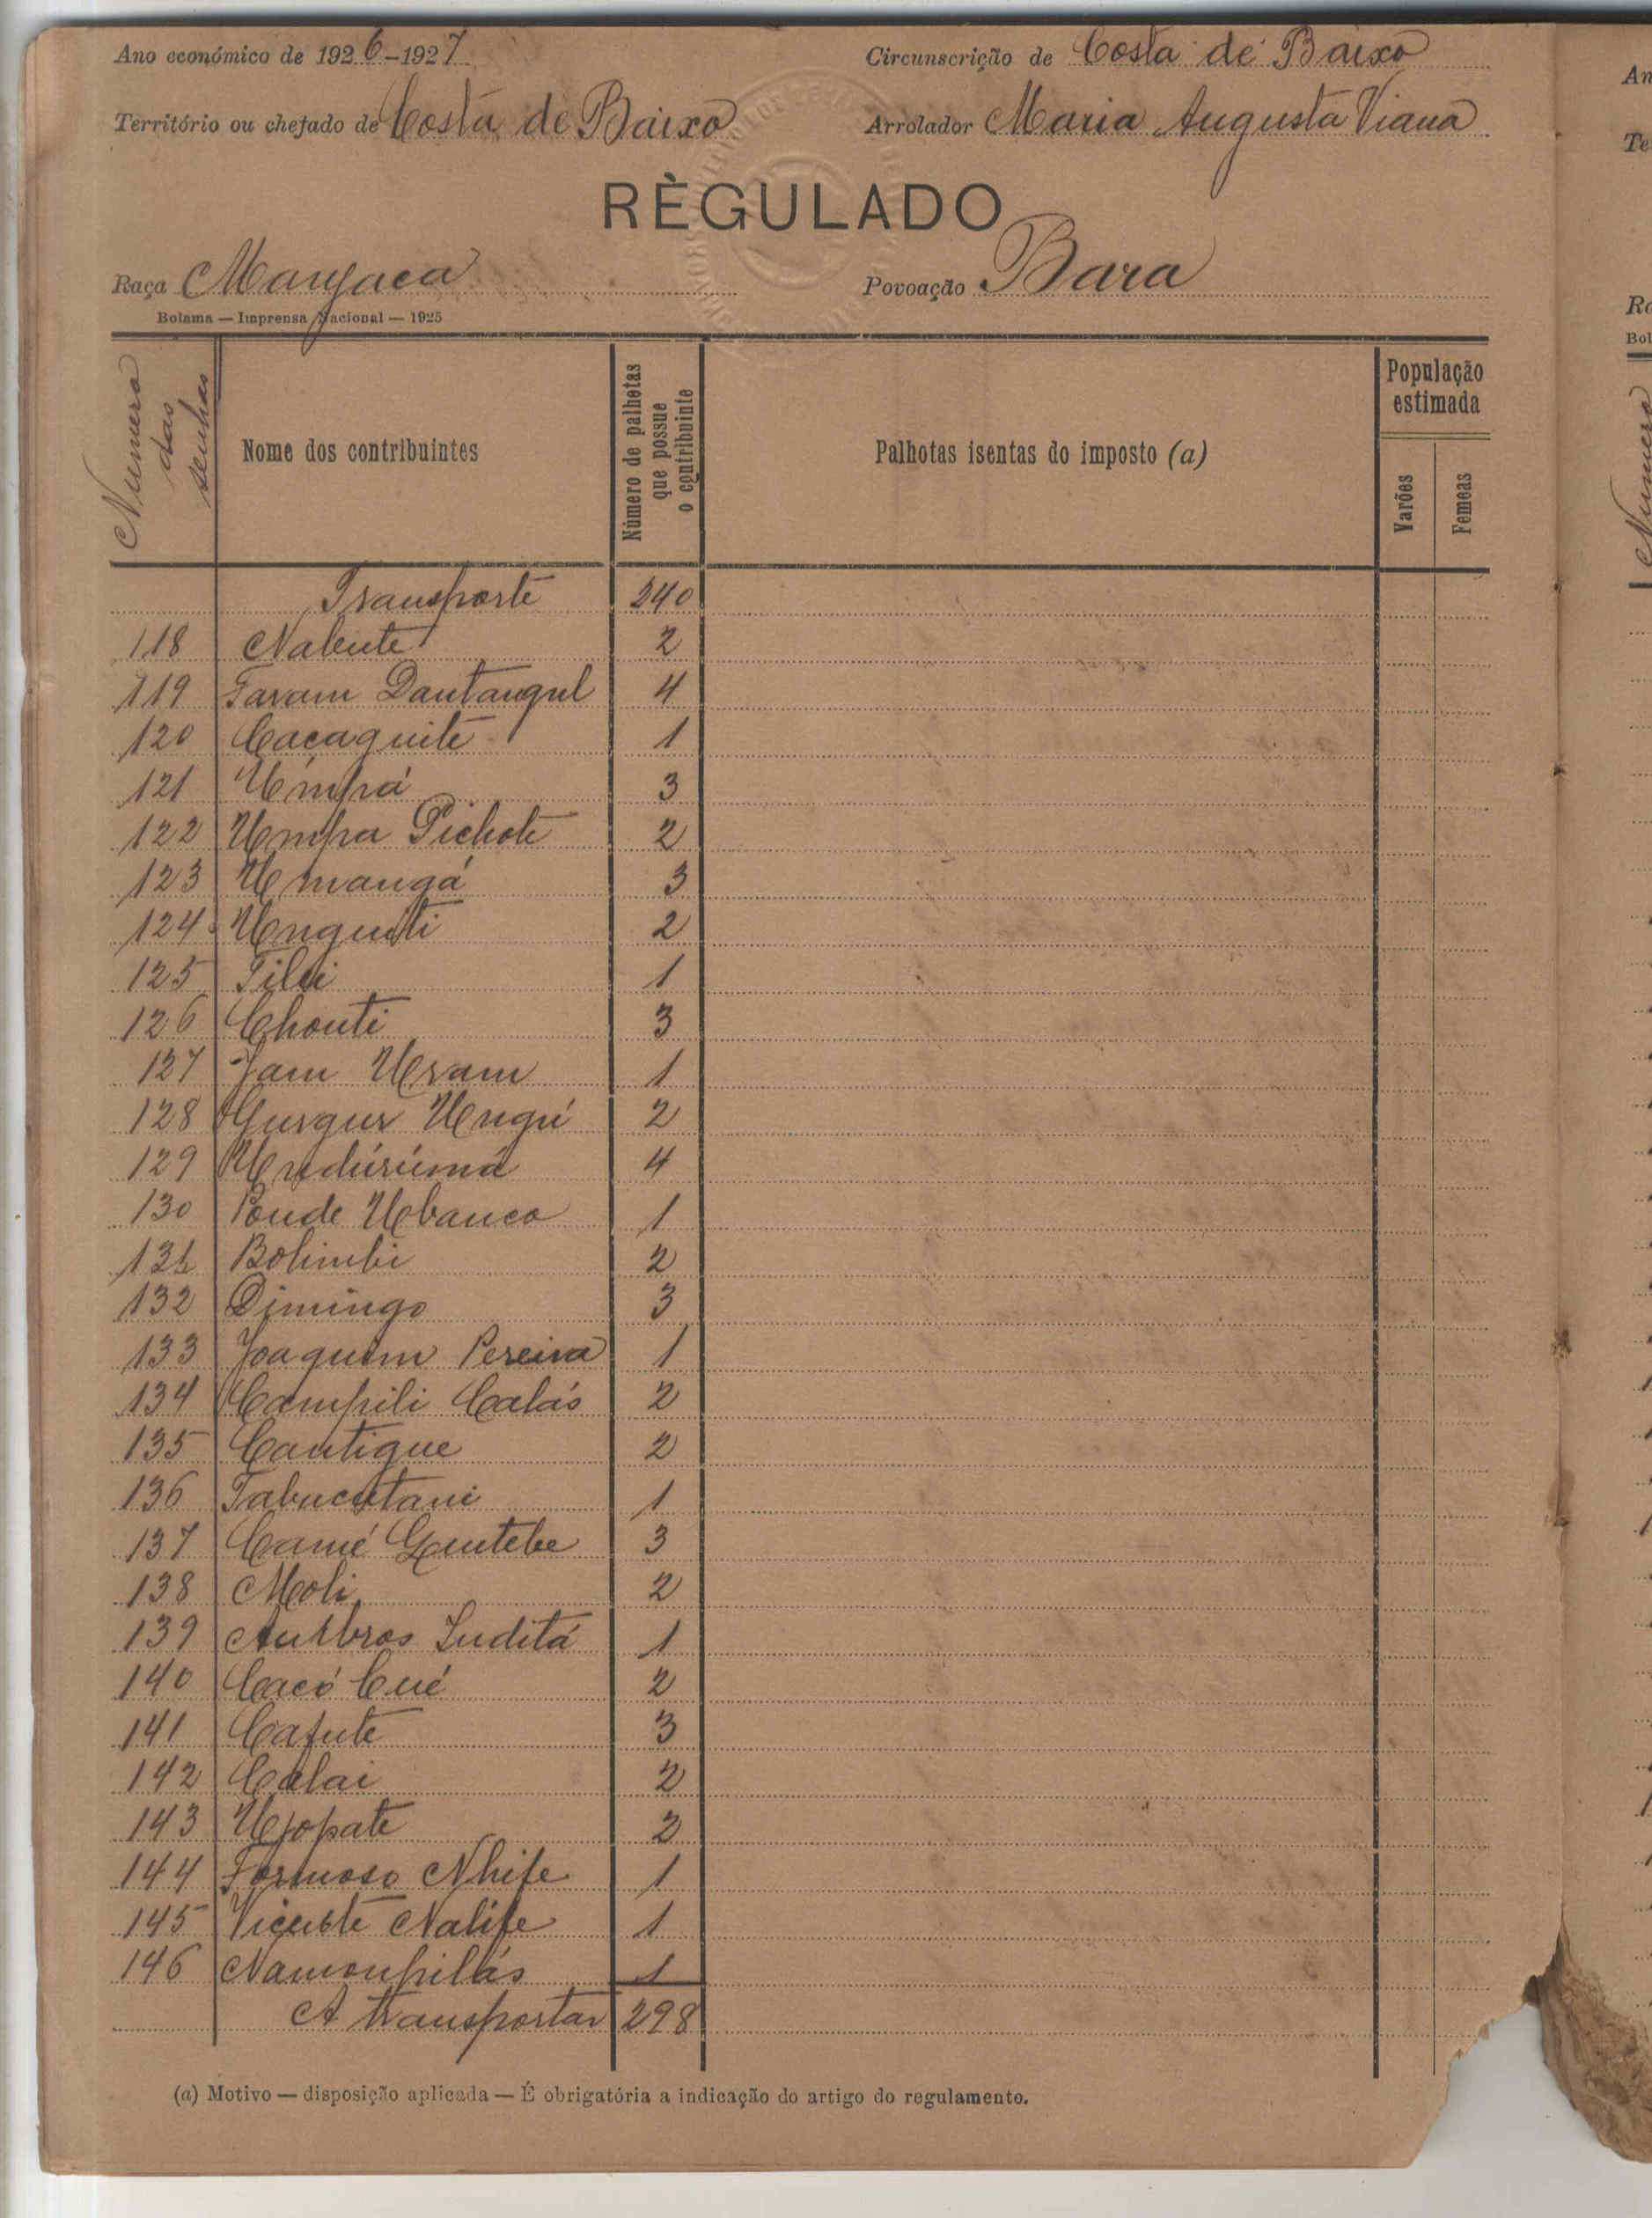 Ano económico de 1926-1927
Circunscrição de Costa de Baixo
Território ou chefado de Costa de Baixo
Arrolador Maria Augusta Viana
RÈGULADO
Raça Manjaca
Povoação Bara
Bolama — Imprensa Nacional — 1925
Numero das senhas
Nome dos contribuintes
Número de palhotas que possue o contribuinte
Palhotas isentas do imposto (a)
População estimada
Varões
Femeas
Transporte 240
118 Nabente 2
119 Taram Dantangul 4
120 Cacaguite 1
121 Umpá 3
122 Umpa Pichote 2
123 Umangá 3
124 Unguiti 2
125 1
126 Chonti 3
127 Jam Uram 1
128 Gurgur Ungú 2
129 Undúrúmá 4
130 Ponde Ubanca 1
131 Bolimbi 2
132 Dimingo 3
133 Joaquim Pereira 1
134 Campili Calás 2
135 Cantigue 2
136 Tabucutani 1
137 Camé Gentebe 3
138 Moli 2
139 Luditá 1
140 Cacó Cué 2
141 Cafute 3
142 Calai 2
143 Ujopate 2
144 Formoso Nhife 1
145 Vicente Nalife 1
146 Namonpilás 1
A transportar 298
(a) Motivo — disposição aplicada — É obrigatória a indicação do artigo do regulamento.